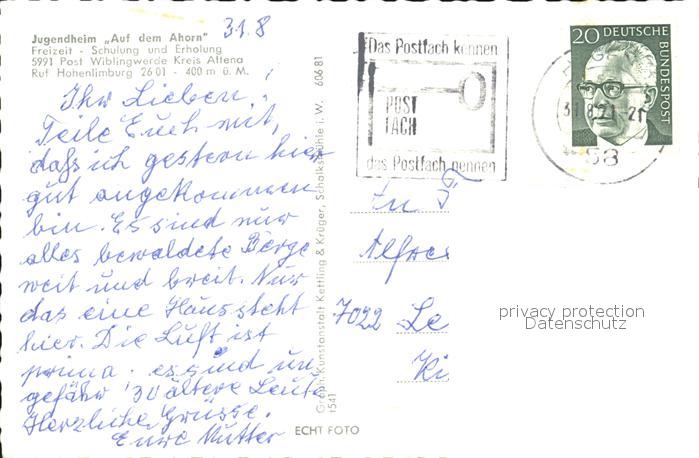 Jugendheim „Auf dem Ahorn"
Freizeit - Schulung und Erholung
5991 Post Wiblingwerde Kreis Altena
Ruf Hohenlimburg 26 01 - 400 m ü. M.
31.8
Ihr Lieben!
Teile Euch mit,
daß ich gestern hier
gut angekommen
bin. Es sind nur
alles bewaldete Berge
weit und breit. Nur
das eine Haus steht
hier. Die Luft ist
prima. es sind un-
gefähr 30 ältere Leute
Herzliche Grüsse.
Eure Mutter
606 81
Graph. Kunstanstalt Kettling & Krüger, Schalksmühle i. W.
1541
ECHT FOTO
Das Postfach kennen
POST
FACH
das Postfach nennen
20 DEUTSCHE
BUNDESPOST
31.8.71-21
58
An
Alfred
7022 Le
Ki
privacy protection
Datenschutz